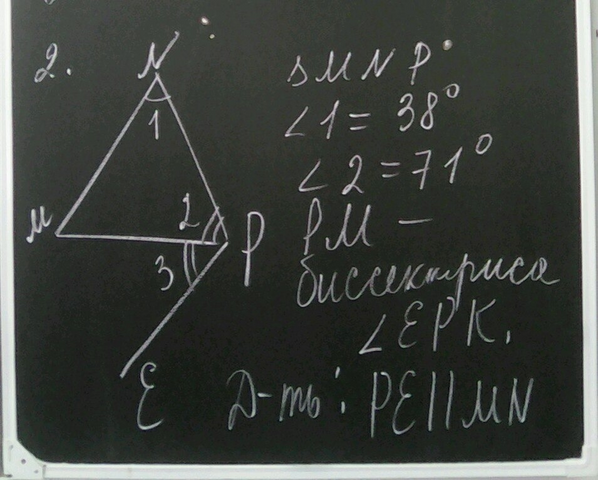 2.
N
1
M
2
P
3
E
ΔMNP
∠1 = 38°
∠2 = 71°
PM —
биссектриса
∠EPK.
Д-ть: PE||MN